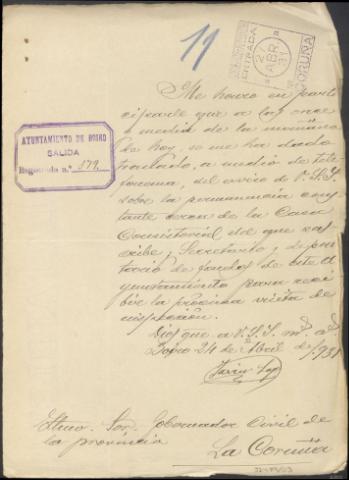 11
ENTRADA
27 ABR. 31
CORUÑA
AYUNTAMIENTO DE BOIRO
SALIDA
Registrada n.º 579
Me honro en parti
ciparle que a las once
y media de la mañana
de hoy, se me ha dado
traslado, a medio de tele
fonema, del aviso de V.S.I.
sobre la permanencia cons
tante cerca de la Casa
Consistorial del que sus
cribe, Secretario y depo
itario de fondos de este A
yuntamiento para reci
bir la próxima visita de
inspección.
Dios gue a V.S.I. ms. as.
Boiro 24 de Abril de 1.931
Iltmo. Sor. Gobernador Civil de
la provincia
La Coruña